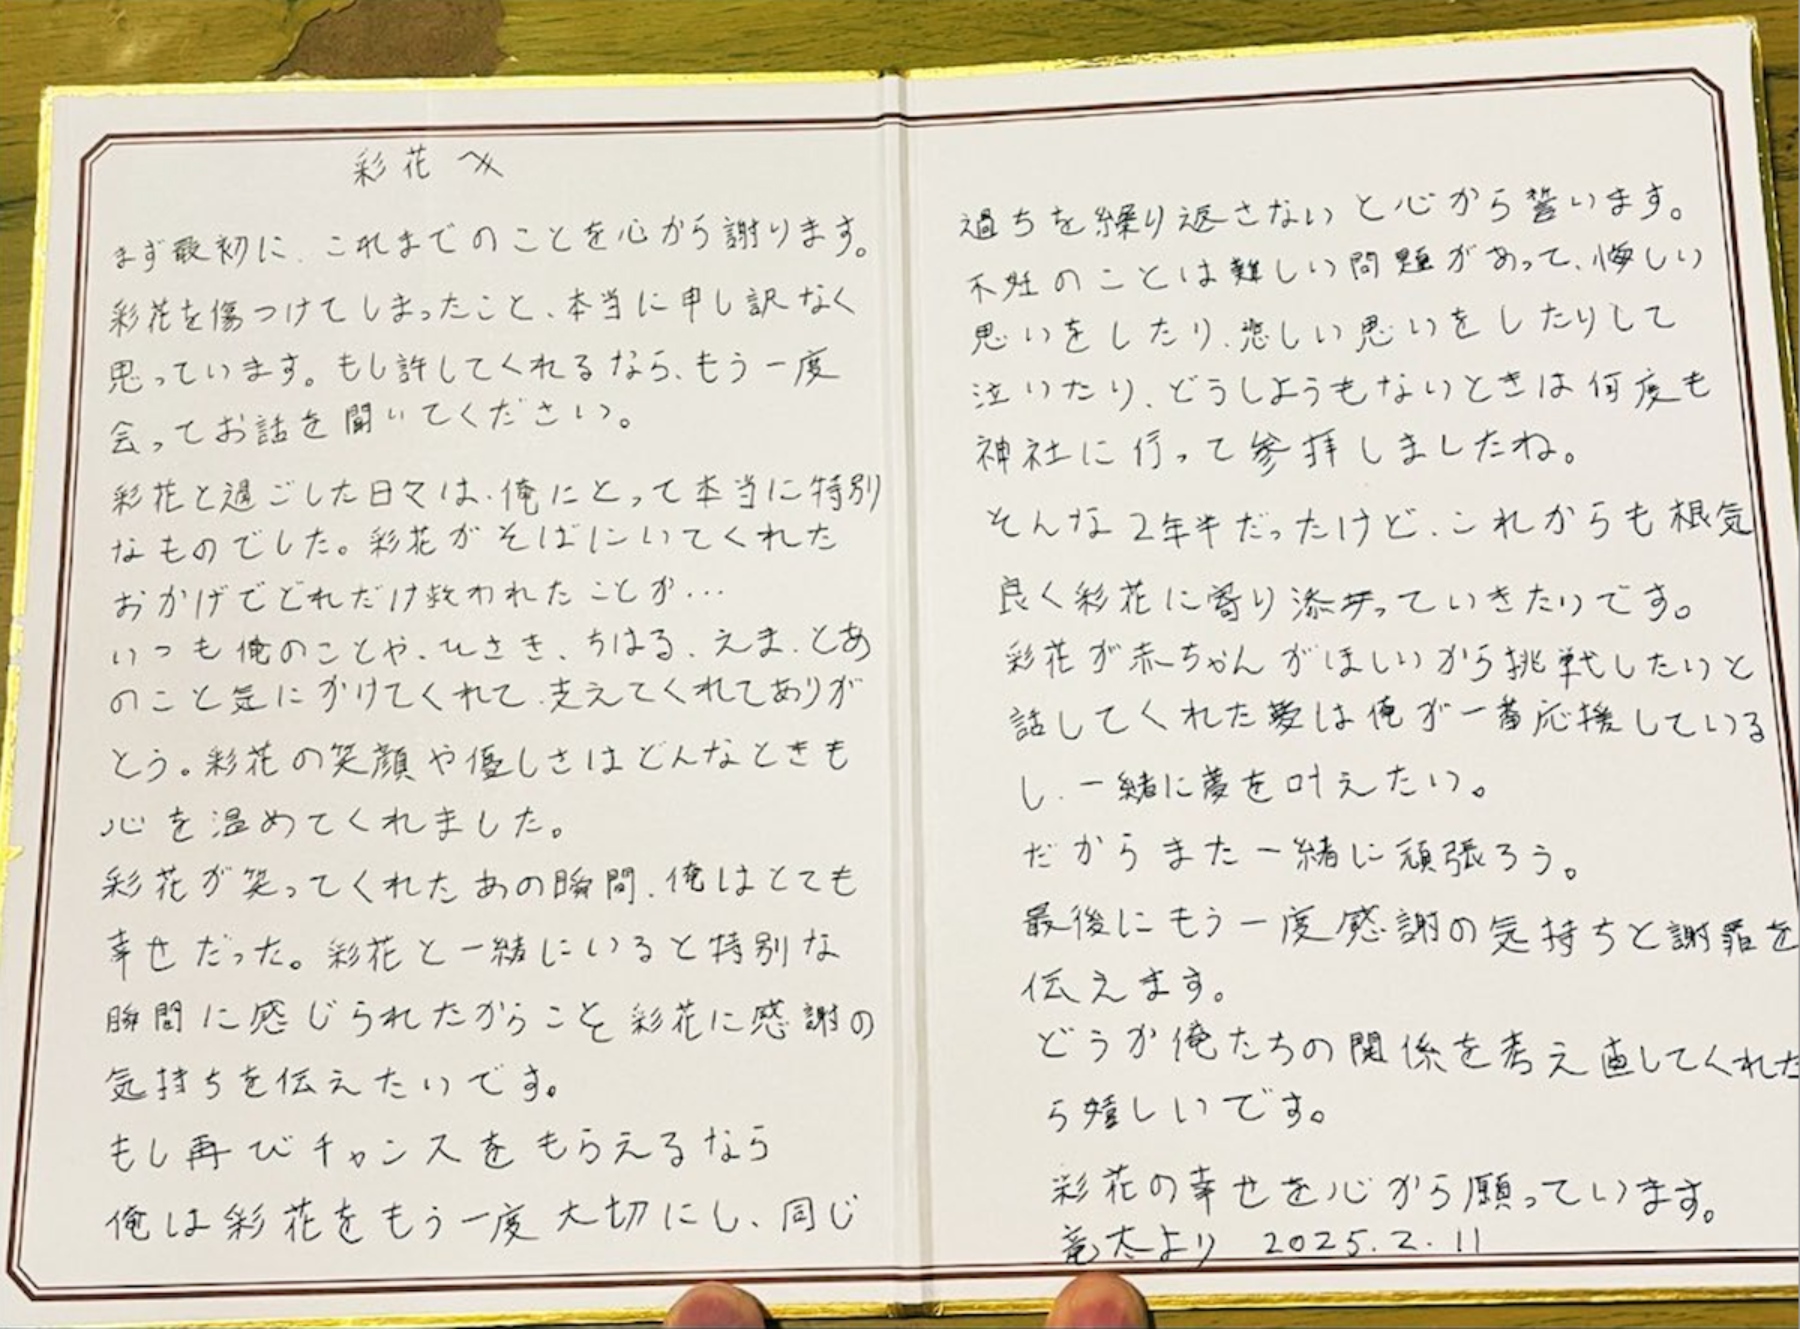 彩花へ
まず最初に、これまでのことを心から謝ります。
彩花を傷つけてしまったこと、本当に申し訳なく
思っています。もし許してくれるなら、もう一度
会ってお話を聞いてください。
彩花と過ごした日々は、俺にとって本当に特別
なものでした。彩花がそばにいてくれた
おかげでどれだけ救われたことか…
いつも俺のことや、ひさき、ちはる、えま、とあ
のこと気にかけてくれて、支えてくれてありが
とう。彩花の笑顔や優しさはどんなときも
心を温めてくれました。
彩花が笑ってくれたあの瞬間、俺はとても
幸せだった。彩花と一緒にいると特別な
瞬間に感じられたからこそ彩花に感謝の
気持ちを伝えたいです。
もし再びチャンスをもらえるなら
俺は彩花をもう一度大切にし、同じ
過ちを繰り返さないと心から誓います。
不妊のことは難しい問題があって、悔しい
思いをしたり、悲しい思いをしたりして
泣いたり、どうしようもないときは何度も
神社に行って参拝しましたね。
そんな2年半だったけど、これからも根気
良く彩花に寄り添っていきたいです。
彩花が赤ちゃんがほしいから挑戦したいと
話してくれた夢は俺が一番応援している
し、一緒に夢を叶えたい。
だからまた一緒に頑張ろう。
最後にもう一度感謝の気持ちと謝罪を
伝えます。
どうか俺たちの関係を考え直してくれた
ら嬉しいです。
彩花の幸せを心から願っています。
竜太より 2025.2.11